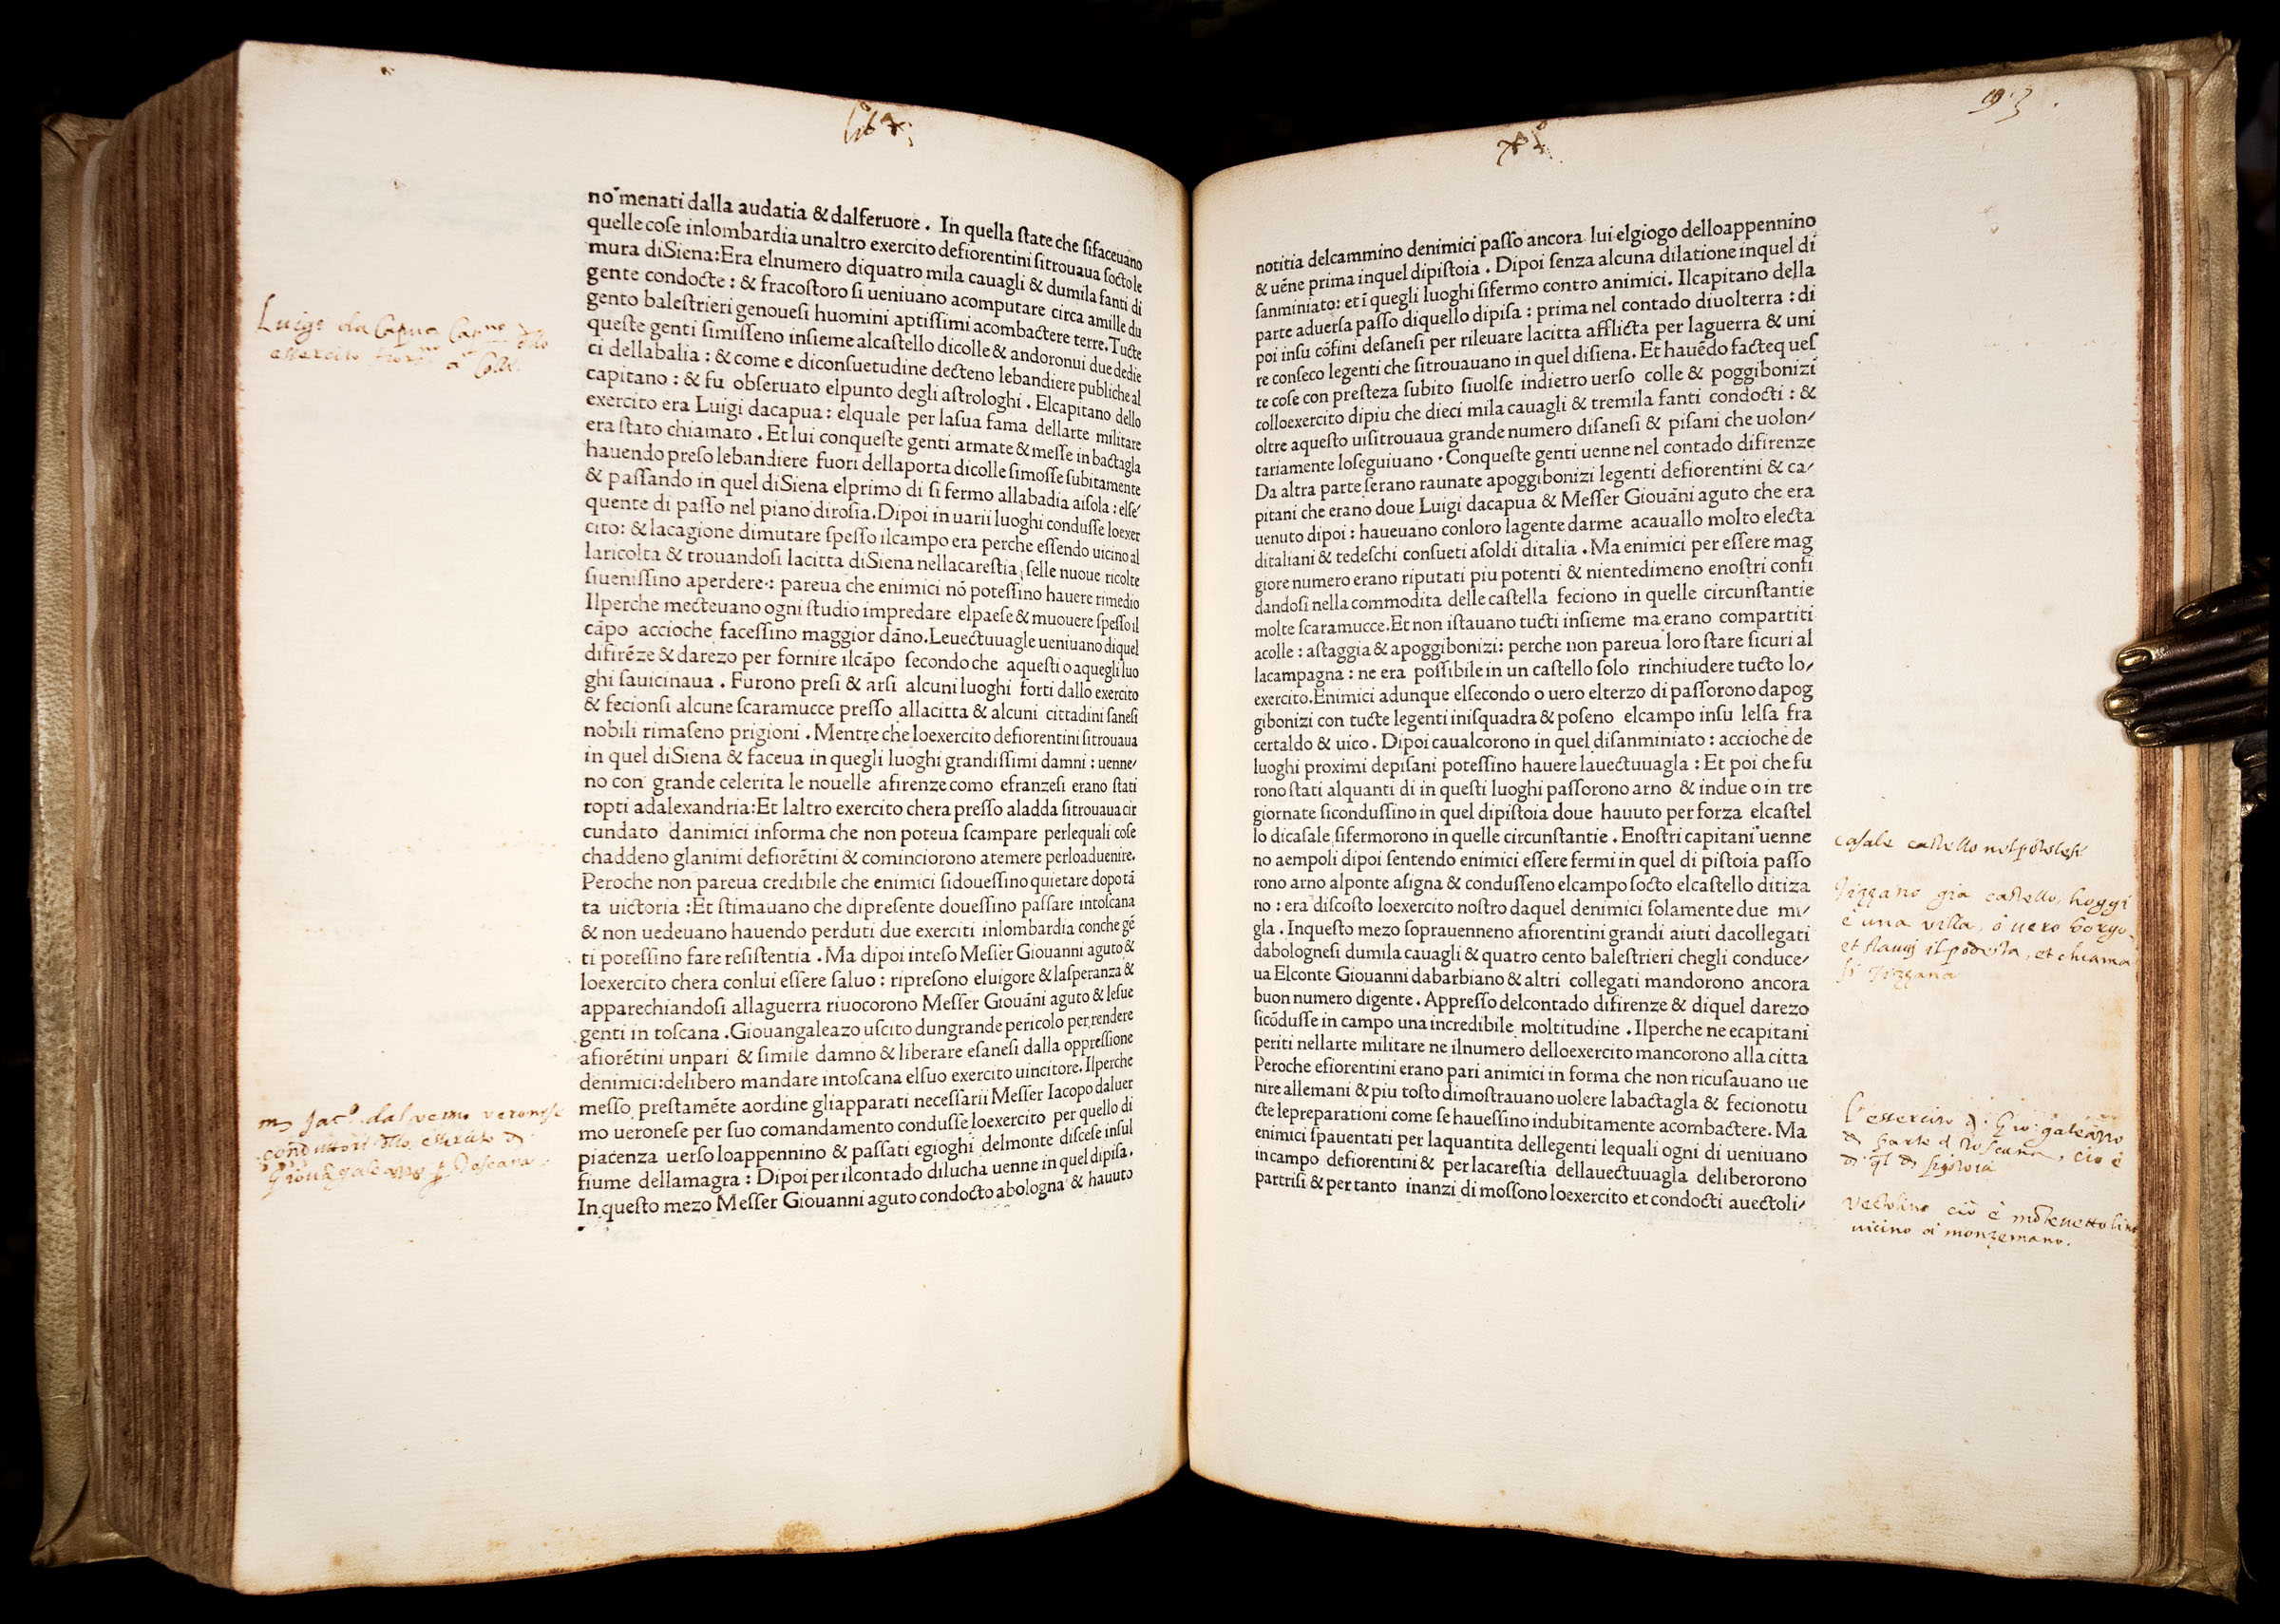 lib x
no menati dalla audatia & dalferuore . In quella ſtate che ſifaceuano
quelle coſe inlombardia unaltro exercito defiorentini ſitrouaua ſocto le
mura diSiena:Era elnumero diquatro mila cauagli & dumila fanti di
gente condocte : & fracoſtoro ſi ueniuano acomputare circa amille du
gento baleſtrieri genoueſi huomini aptiſſimi acombactere terre.Tucte
queſte genti ſimiſſeno inſieme alcaſtello dicolle & andoronui due dedie
ci dellabalia : & come e diconſuetudine decteno lebandiere publiche al
capitano : & fu obſeruato elpunto degli aſtrologhi . Elcapitano dello
exercito era Luigi dacapua : elquale per laſua fama dellarte militare
era ſtato chiamato . Et lui conqueſte genti armate & meſſe in bactagla
hauendo preſo lebandiere fuori dellaporta dicolle ſimoſſe ſubitamente
& paſſando in quel diSiena elprimo di ſi fermo allabadia aiſola : elſe/
quente di paſſo nel piano diroſia.Dipoi in uarii luoghi conduſſe loexer
cito: & lacagione dimutare ſpeſſo ilcampo era perche eſſendo uicino al
laricolta & trouandoſi lacitta diSiena nellacareſtia ſelle nuoue ricolte
ſiueniſſino aperdere : pareua che enimici nō poteſſino hauere rimedio
Ilperche mecteuano ogni ſtudio impredare elpaeſe & muouere ſpeſſo il
cāpo accioche faceſſino maggior dāno.Leuectuuagle ueniuano diquel
difirēze & darezo per fornire ilcāpo ſecondo che aqueſti o aquegli luo
ghi ſauicinaua . Furono preſi & arſi alcuni luoghi forti dallo exercito
& fecionſi alcune ſcaramucce preſſo allacitta & alcuni cittadini ſaneſi
nobili rimaſeno prigioni . Mentre che loexercito defiorentini ſitrouaua
in quel diSiena & faceua in quegli luoghi grandiſſimi damni : uenne/
no con grande celerita le nouelle afirenze como efranzeſi erano ſtati
ropti adalexandria:Et laltro exercito chera preſſo aladda ſitrouaua cir
cundato danimici informa che non poteua ſcampare perlequali coſe
chaddeno glanimi defiorētini & cominciorono atemere perloaduenire.
Peroche non pareua credibile che enimici ſidoueſſino quietare dopo tā
ta uictoria :Et ſtimauano che dipreſente doueſſino paſſare intoſcana
& non uedeuano hauendo perduti due exerciti inlombardia conche gē
ti poteſſino fare reſiſtentia . Ma dipoi inteſo Meſſer Giouanni aguto &
loexercito chera conlui eſſere ſaluo : ripreſono eluigore & laſperanza &
apparechiandoſi allaguerra riuocorono Meſſer Giouāni aguto & leſue
genti in toſcana .Giouangaleazo uſcito dungrande pericolo per rendere
afiorētini unpari & ſimile damno & liberare eſaneſi dalla oppreſſione
denimici:delibero mandare intoſcana elſuo exercito uincitore. Ilperche
meſſo preſtamēte aordine gliapparati neceſſarii Meſſer Iacopo daluer
mo ueroneſe per ſuo comandamento conduſſe loexercito per quello di
piacenza uerſo loappennino & paſſati egioghi delmonte diſceſe inſul
fiume dellamagra : Dipoi per ilcontado dilucha uenne in quel dipiſa .
In queſto mezo Meſſer Giouanni aguto condocto abologna & hauuto
Luigi da Capua
essercito
mr Jaco. dal vermo veronese
Toscana
93
notitia delcammino denimici paſſo ancora lui elgiogo delloappennino
& uēne prima inquel dipiſtoia . Dipoi ſenza alcuna dilatione inquel di
ſanminiato: et ī quegli luoghi ſifermo contro animici. Ilcapitano della
parte aduerſa paſſo diquello dipiſa : prima nel contado diuolterra : di
poi inſu cōfini deſaneſi per rileuare lacitta afflicta per laguerra & uni
re conſeco legenti che ſitrouauano in quel diſiena. Et hauēdo facte queſ
te coſe con preſteza ſubito ſiuolſe indietro uerſo colle & poggibonizi
colloexercito dipiu che dieci mila cauagli & tremila fanti condocti : &
oltre aqueſto uiſitrouaua grande numero diſaneſi & piſani che uolon/
tariamente loſeguiuano . Conqueſte genti uenne nel contado difirenze
Da altra parte ſerano raunate apoggibonizi legenti defiorentini & ca/
pitani che erano doue Luigi dacapua & Meſſer Giouāni aguto che era
uenuto dipoi : haueuano conloro lagente darme acauallo molto electa
ditaliani & tedeſchi conſueti aſoldi ditalia . Ma enimici per eſſere mag
giore numero erano riputati piu potenti & nientedimeno enoſtri confi
dandoſi nella commodita delle caſtella feciono in quelle circunſtantie
molte ſcaramucce.Et non iſtauano tucti inſieme ma erano compartiti
acolle : aſtaggia & apoggibonizi: perche non pareua loro ſtare ſicuri al
lacampagna : ne era poſſibile in un caſtello ſolo rinchiudere tucto lo/
exercito.Enimici adunque elſecondo o uero elterzo di paſſorono dapog
gibonizi con tucte legenti iniſquadra & poſeno elcampo inſu lelſa fra
certaldo & uico . Dipoi caualcorono in quel diſanminiato : accioche de
luoghi proximi depiſani poteſſino hauere lauectuuagla : Et poi che fu
rono ſtati alquanti di in queſti luoghi paſſorono arno & indue o in tre
giornate ſiconduſſino in quel dipiſtoia doue hauuto per forza elcaſtel
lo dicaſale ſifermorono in quelle circunſtantie . Enoſtri capitani uenne
no aempoli dipoi ſentendo enimici eſſere fermi in quel di piſtoia paſſo
rono arno alponte aſigna & conduſſeno elcampo ſocto elcaſtello ditiza
no : era diſcoſto loexercito noſtro daquel denimici ſolamente due mi/
gla . Inqueſto mezo ſoprauenneno afiorentini grandi aiuti dacollegati
dabologneſi dumila cauagli & quatro cento baleſtrieri chegli conduce/
ua Elconte Giouanni dabarbiano & altri collegati mandorono ancora
buon numero digente . Appreſſo delcontado difirenze & diquel darezo
ſicōduſſe in campo una incredibile moltitudine . Ilperche ne ecapitani
periti nellarte militare ne ilnumero delloexercito mancorono alla citta
Peroche efiorentini erano pari animici in forma che non ricuſauano ue
nire allemani & piu toſto dimoſtrauano uolere labactagla & fecionotu
cte lepreparationi come ſe haueſſino indubitamente acombactere. Ma
enimici ſpauentati per laquantita dellegenti lequali ogni dī ueniuano
incampo defiorentini & per lacareſtia dellauectuuagla deliberorono
partriſi & per tanto inanzi di moſſono loexercito et condocti auectoli/
casale castello
Tizzano gia castello, hoggi
è una villa, o uero borgo,
et chiama
si Tizzana
L'essercito
Toscana, cio è
uicino a